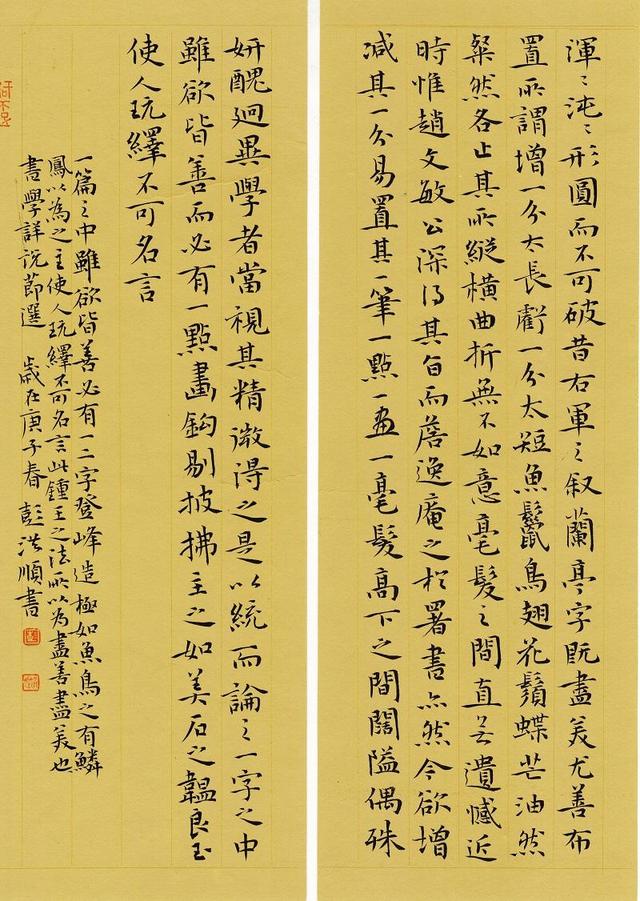 渾〻沌〻形圓而不可破昔右軍之叙蘭亭字既盡美尤善布
置所謂增一分太長虧一分太短魚鬛鳥翅花鬚蝶芒油然
粲然各止其所縱橫曲折無不如意毫髮之間直無遺憾近
時惟趙文敏公深得其旨而詹逸庵之於署書亦然今欲增
減其一分易置其一筆一點一畫一毫髮高下之間闊隘偶殊
妍醜迥異學者當視其精微得之是以統而論之一字之中
雖欲皆善而必有一點畫鈎剔披拂主之如美石之韞良玉
使人玩繹不可名言
一篇之中雖欲皆善必有一二字登峰造極如魚鳥之有鱗
鳳以為之主使人玩繹不可名言此鍾王之法所以為盡善盡美也
書學詳說節選 歲在庚子春 彭洪順書